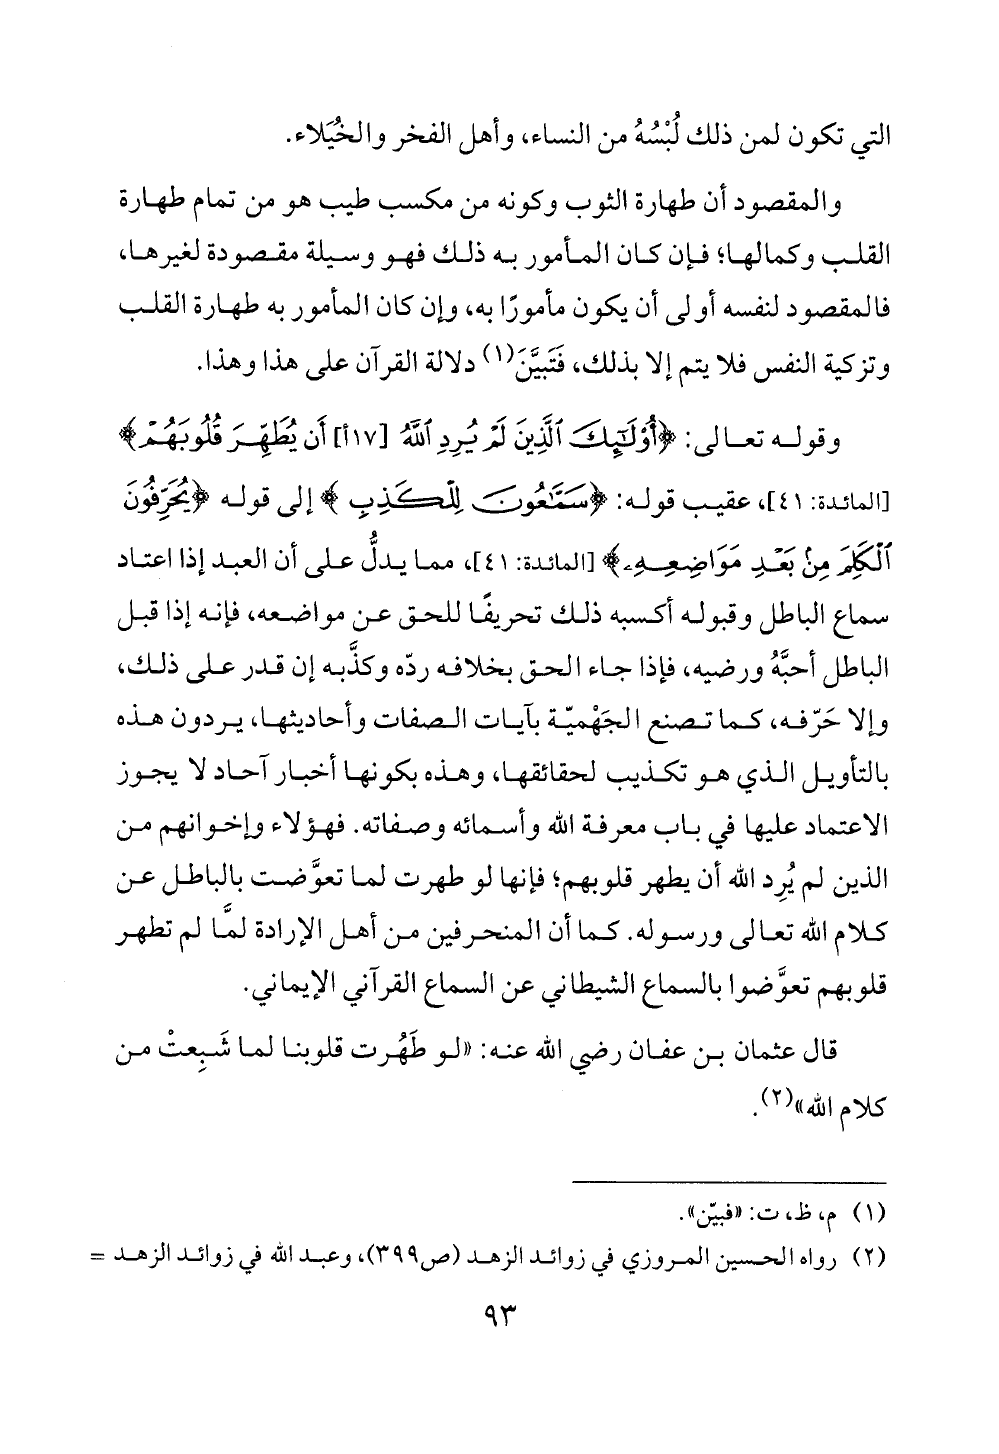 التي تكون لمن ذلك لُبْسُهُ من النساء، وأهل الفخر والخُيَلاء.
والمقصود أن طهارة الثوب وكونه من مكسب طيب هو من تمام طهارة
القلب وكمالها؛ فإن كان المأمور به ذلك فهو وسيلة مقصودة لغيرها،
فالمقصود لنفسه أولى أن يكون مأمورًا به، وإن كان المأمور به طهارة القلب
وتزكية النفس فلا يتم إلا بذلك، فَتَبَيَّنَ(١) دلالة القرآن على هذا وهذا.
وقوله تعالى: ﴿أُوْلَٰٓئِكَ ٱلَّذِينَ لَمْ يُرِدِ ٱللَّهُ [١٧أ] أَن يُطَهِّرَ قُلُوبَهُمْ﴾
[المائدة: ٤١]، عقيب قوله: ﴿سَمَّٰعُونَ لِلْكَذِبِ﴾ إلى قوله ﴿يُحَرِّفُونَ
ٱلْكَلِمَ مِنۢ بَعْدِ مَوَاضِعِهِۦ﴾ [المائدة: ٤١]، مما يدلُّ على أن العبد إذا اعتاد
سماع الباطل وقبوله أكسبه ذلك تحريفًا للحق عن مواضعه، فإنه إذا قبل
الباطل أحبَّهُ ورضيه، فإذا جاء الحق بخلافه ردّه وكذَّبه إن قدر على ذلك،
وإلا حَرّفه، كما تصنع الجَهْميّة بآيات الصفات وأحاديثها، يردون هذه
بالتأويل الذي هو تكذيب لحقائقها، وهذه بكونها أخبار آحاد لا يجوز
الاعتماد عليها في باب معرفة الله وأسمائه وصفاته. فهؤلاء وإخوانهم من
الذين لم يُرِد الله أن يطهر قلوبهم؛ فإنها لو طهرت لما تعوَّضت بالباطل عن
كلام الله تعالى ورسوله. كما أن المنحرفين من أهل الإرادة لمَّا لم تطهر
قلوبهم تعوَّضوا بالسماع الشيطاني عن السماع القرآني الإيماني.
قال عثمان بن عفان رضي الله عنه: «لو طَهُرت قلوبنا لما شَبِعتْ من
كلام الله»(٢).
(١) م، ظ، ت: «فبيّن».
(٢) رواه الحسين المروزي في زوائد الزهد (ص٣٩٩)، وعبد الله في زوائد الزهد =
٩٣